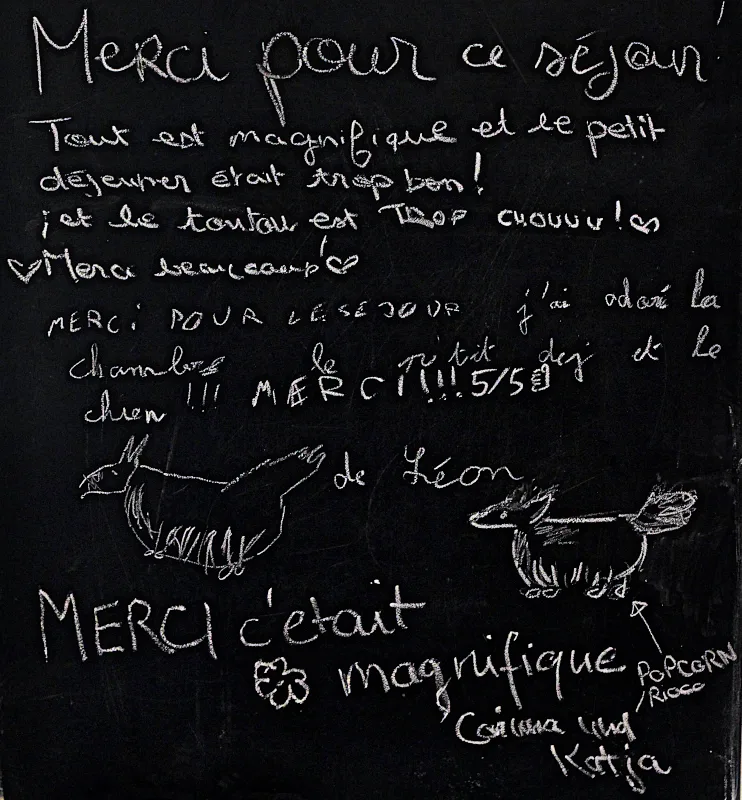 Merci pour ce séjour!
Tout est magnifique et le petit
déjeuner était trop bon!
¡et le toutou est TROP CHOUUU!♡
♡Merci beaucoup!♡
MERCI POUR LE SEJOUR j'ai adoré la
chambre le p'tit dej et le
chien !!! MERCI!!! 5/5
de Léon
MERCI c'était
magnifique
POPCORN
Corinna und
Katja